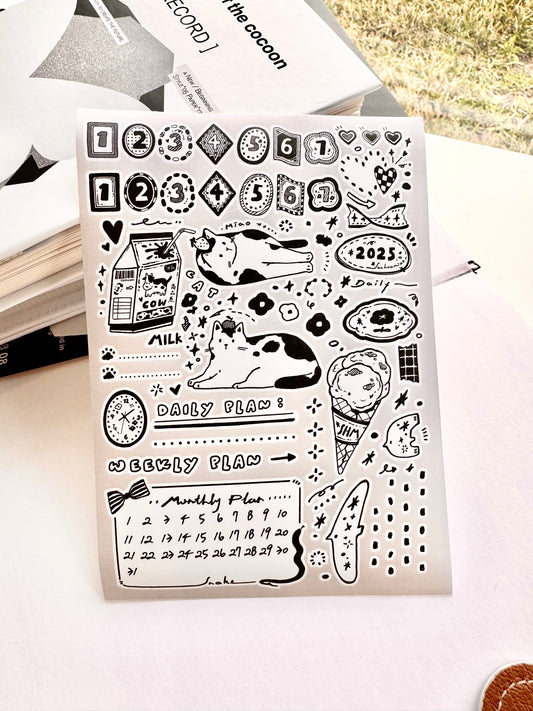 of the cocoon
RECORD ]
A New / Beginning
1 2 3 4 5 6 7
1 2 3 4 5 6 7
Miao
2025
CAT
Daily
COW
MILK
DAILY PLAN:
JHM
WEEKLY PLAN
Monthly Plan
1 2 3 4 5 6 7 8 9 10
11 12 13 14 15 16 17 18 19 20
21 22 23 24 25 26 27 28 29 30
31
Snake